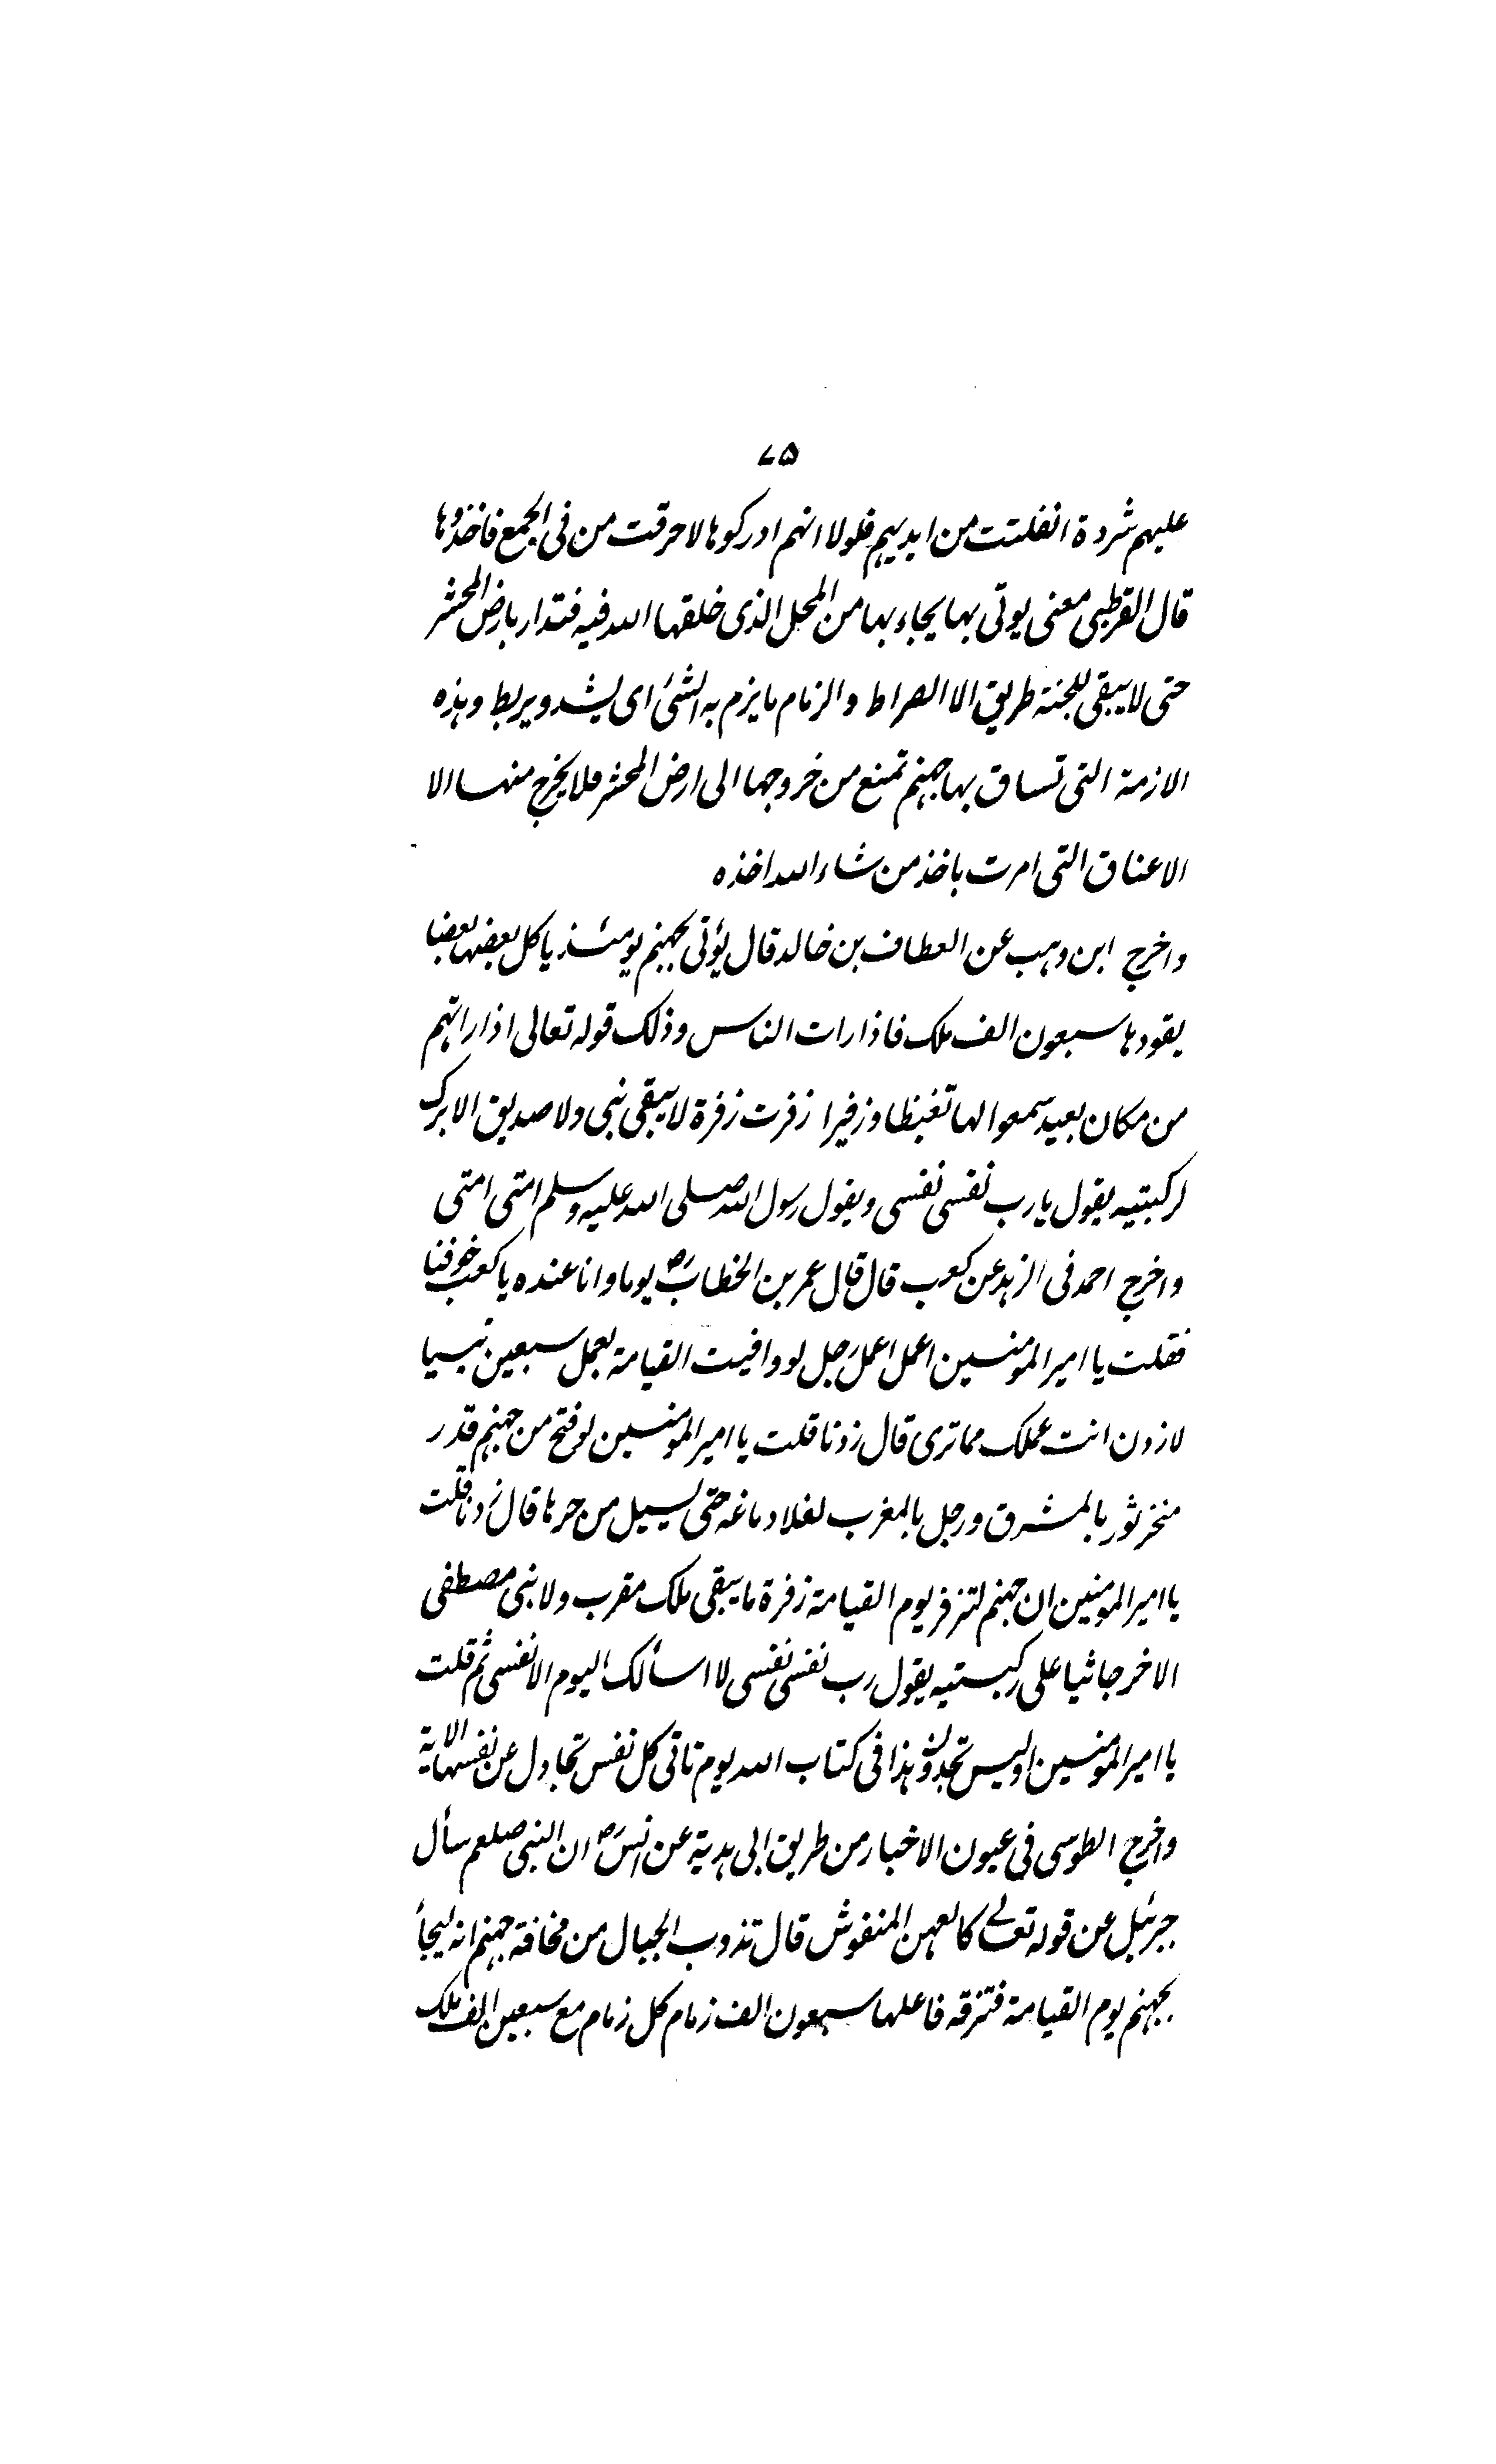 ۷۵
عليهم شردة انفلتت من ايديهم فلولا انهم ادركوها لاحرقت من فى الجمع فاخذوها
قال القرطبى معنى يوتى بها يجاء بها من المحل الذى خلقها الله فيه فتدار بارض المحشر
حتى لا يبقى للجنة طريق الا الصراط والزمام ما يزم به الشئ اى يشد ويربط وهذه
الازمة التى تساق بها جهنم تمنع من خروجها الى ارض المحشر فلا يخرج منها الا
الاعناق التى امرت باخذ من شاء الله اخذه
واخرج ابن وهب عن العطاف بن خالد قال يؤتى بجهنم يومئذ ياكل بعضها بعضا
يقودها سبعون الف ملك فاذا رات الناس وذلك قوله تعالى اذا راتهم
من مكان بعيد سمعوا لها تغيظا وزفيرا زفرت زفرة لا يبقى نبى ولا صديق الا برك
لركبتيه يقول يا رب نفسى نفسى ويقول رسول الله صلى الله عليه وسلم امتى امتى
واخرج احمد فى الزهد عن كعب قال قال عمر بن الخطابؓ يوما وانا عنده يا كعب خوفنا
فقلت يا امير المومنين اعمل اعمل رجل لو وافيت القيامة بعمل سبعين نبيا
لازدن انت عملك مما ترى قال زدنا قلت يا امير المومنين لو فتح من جهنم قدر
منخر ثور بالمشرق ورجل بالمغرب لغلا دماغه حتى يسيل من حرها قال زدنا قلت
يا امير المومنين ان جهنم لتزفر يوم القيامة زفرة ما يبقى ملك مقرب ولا نبى مصطفى
الا خر جاثيا على ركبتيه يقول رب نفسى نفسى لا اسألك اليوم الا نفسى ثم قلت
يا امير المومنين اوليس تجدون هذا فى كتاب الله يوم تاتى كل نفس تجادل عن نفسها الاية
واخرج الطوسى فى عيون الاخبار من طريق ابى هدية عن انسؓ ان النبى صلعم سأل
جبرئيل عن قوله تعالے كالعهن المنفوش قال تذوب الجبال من مخافة جهنم انه ليجأ
بجهنم يوم القيامة فتزقه فاعلها سبعون الف زمام كل زمام مع سبعين الف ملك